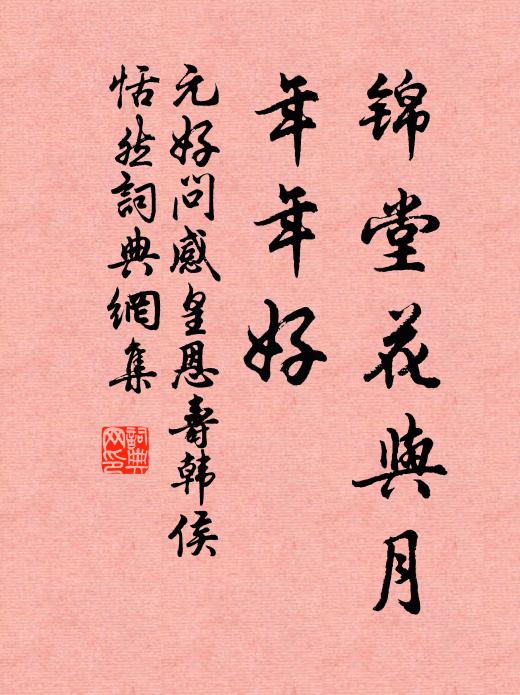 锦堂花與月
年年好
元好问感皇恩壽韩侯
恬然詞典網集
詞典网印